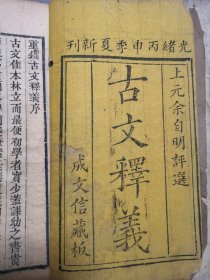 光緒丙申季夏新刊
上元余自明評選
古文釋義
成文信藏板
重鐫古文釋義序
古文佳本林立而最便初學者實少蓋課幼之書貴